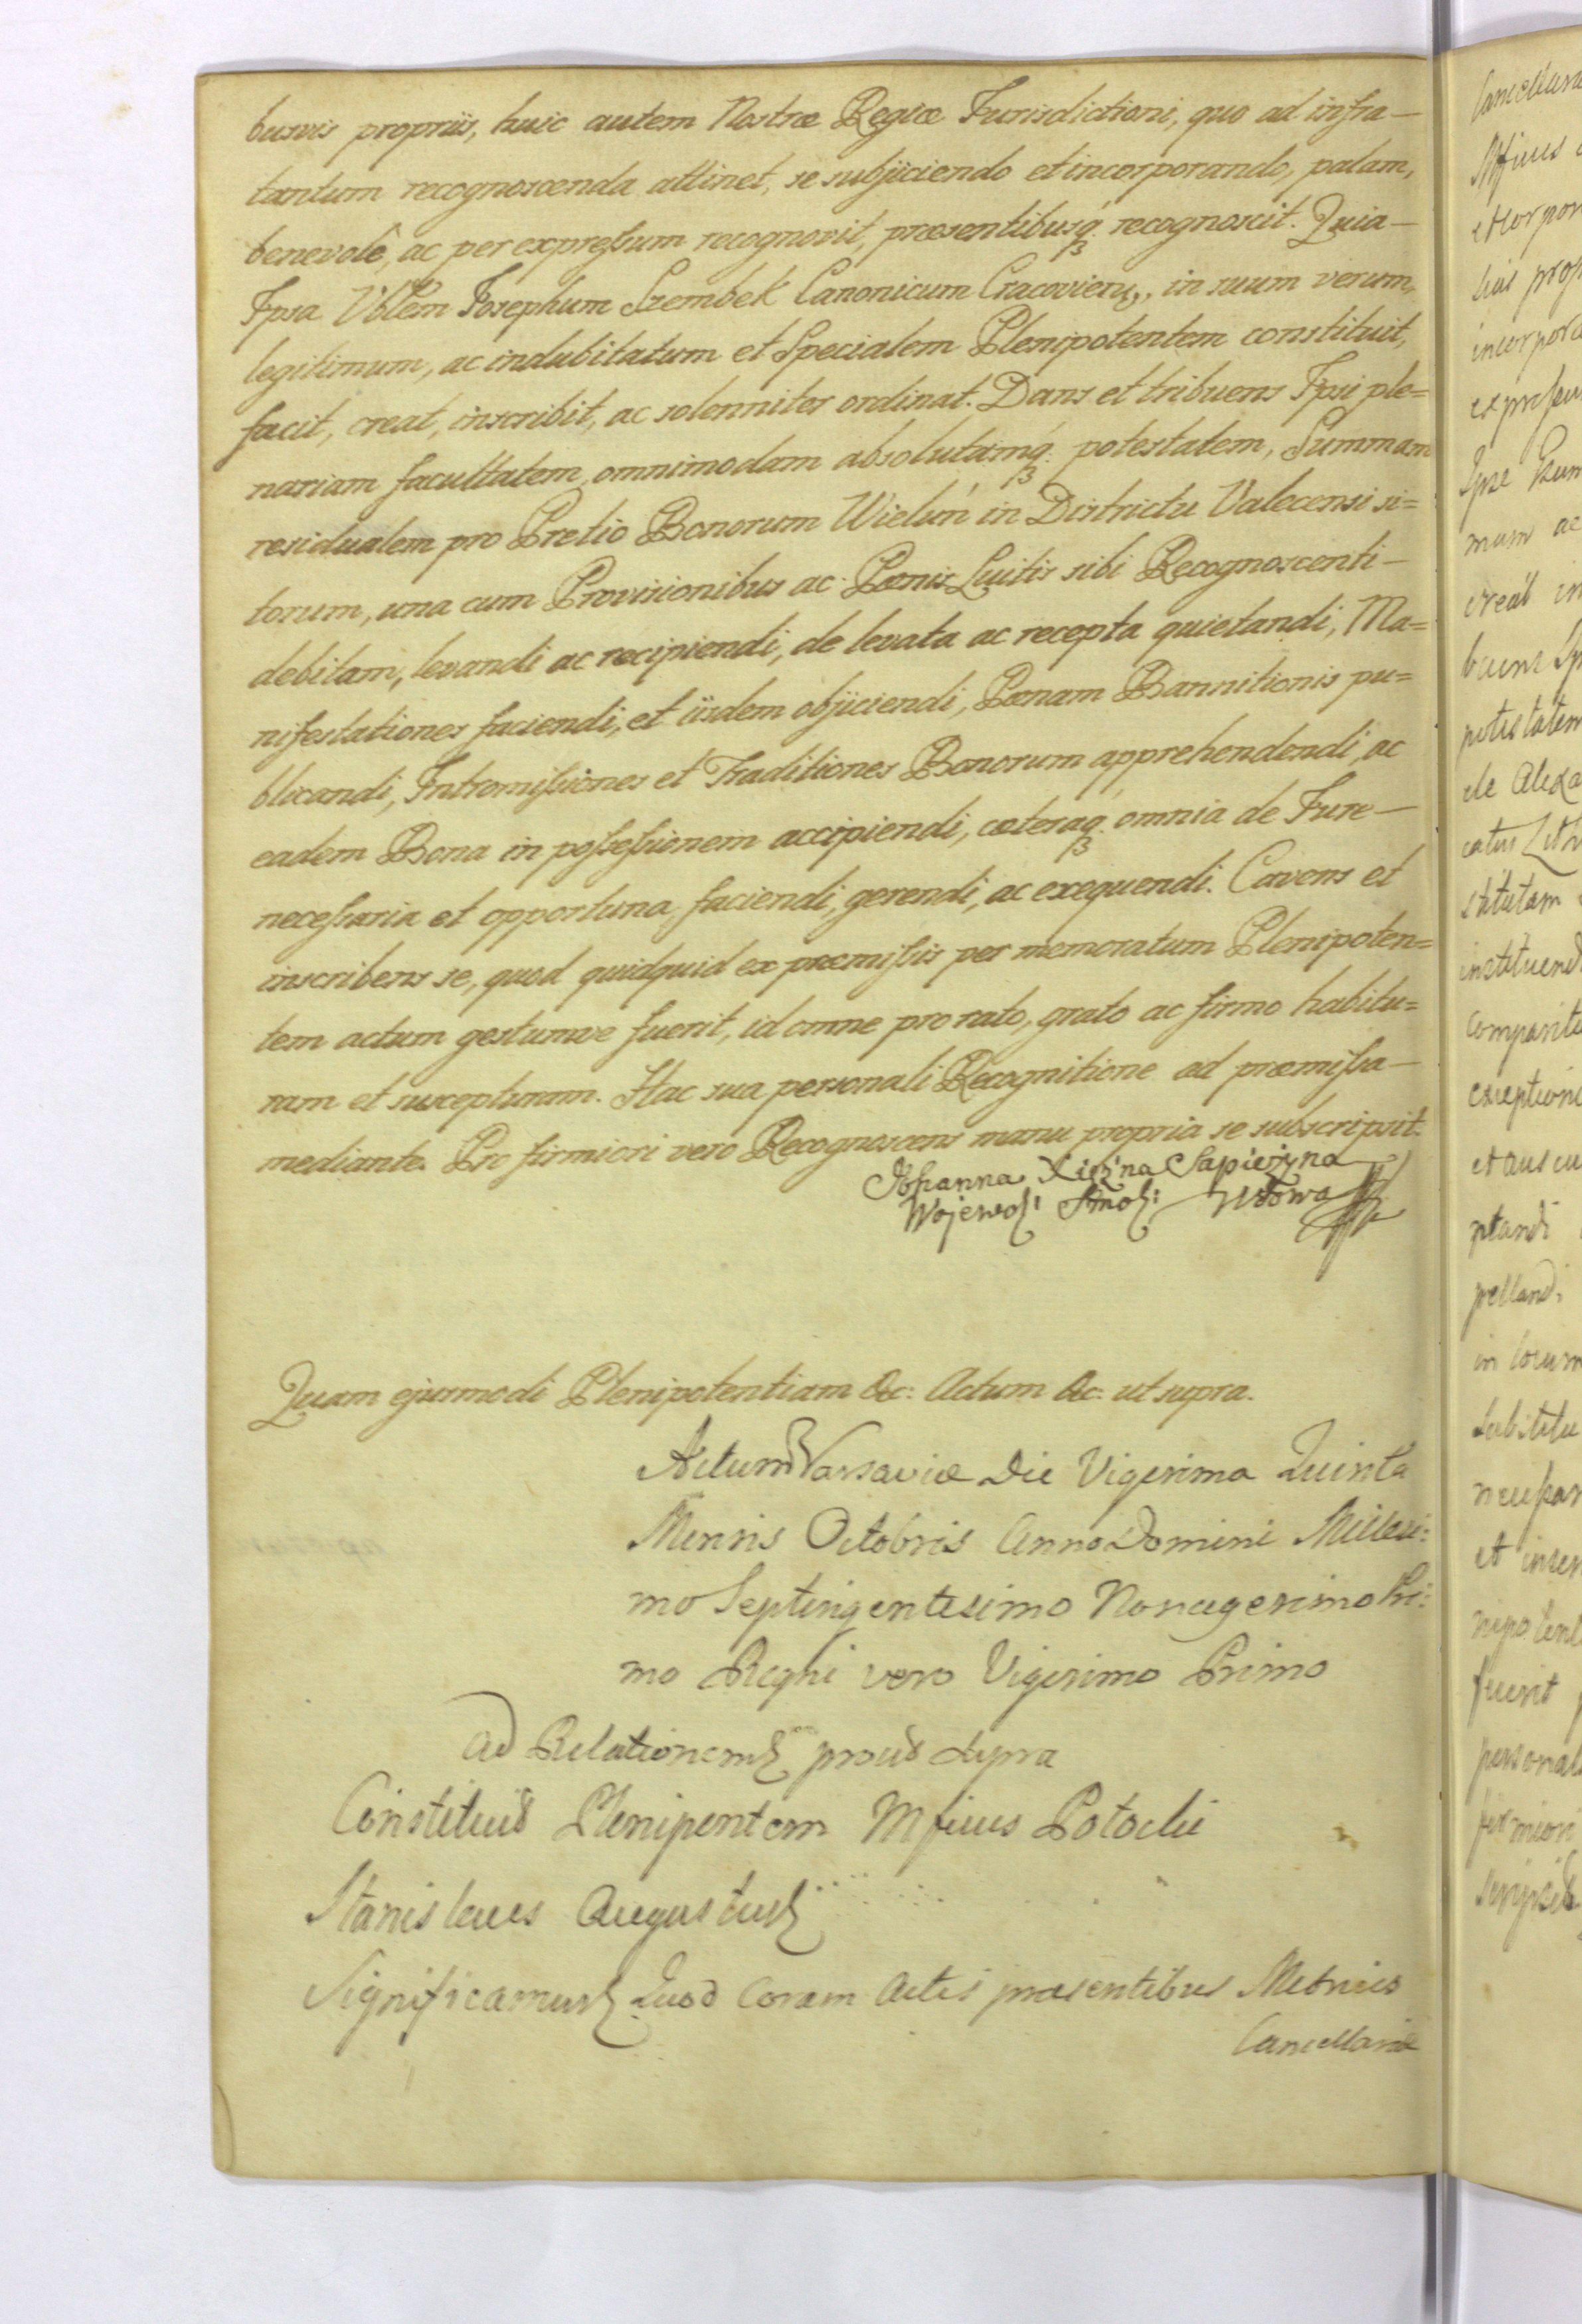 busvis propriis, huic autem Nostræ Regiæ Jurisdictioni, quo ad infra—
tantum recognoscenda attinet, se subjiciendo et incorporando, palam,
benevolè, ac per expressum recognovit, præsentibusq; recognoscit. Quia—
Ipsa Vblem Josephum Szembek Canonicum Cracoviens., in suum verum,
legitimum, ac indubitatum et Specialem Plenipotentem constituit,
facit, creat, inscribit, ac solenniter ordinat. Dans et tribuens Ipsi ple=
nariam facultatem, omnimodam absolutamq; potestatem, Summam
residualem pro Pretio Bonorum Wieluń in Districtu Valecensi si=
torum, una cum Provisionibus ac Pœnis Luitis sibi Recognoscenti—
debitam, levandi ac recipiendi, de levata ac recepta quietandi, Ma=
nifestationes faciendi, et iisdem objiciendi, Pœnam Bannitionis pu=
blicandi, Intromissiones et Traditiones Bonorum apprehendendi, ac
eadem Bona in possessionem accipiendi, cæteraq; omnia de Jure—
necessaria et opportuna, faciendi, gerendi, ac exequendi. Cavens et
inscribens se, quod quidquid ex præmissis per memoratum Plenipoten=
tem actum gestumve fuerit, id omne pro rato, grato ac firmo habitu=
ram et suscepturam. Hac sua personali Recognitione ad præmissa—
mediante. Pro firmiori vero Recognoscens manu propria se subscripsit.
Johanna Xiężna Sapieżyna
Wojewodź: Smoł: Wdowa
Quam ejusmodi Plenipotentiam &c: Actum &c: ut supra.
Actum Varsaviæ Die Vigesima Quinta
Mensis Octobris Anno Domini Millesi:
mo Septingentesimo Nonagesimo Pri:
mo Regni vero Vigesimo Primo
Ad Relationem prout supra
Constituit Plenipentem Mficus Potocki
Stanislaus Augustus
Significamus Quod Coram Actis præsentibus Metrices
Cancellariæ